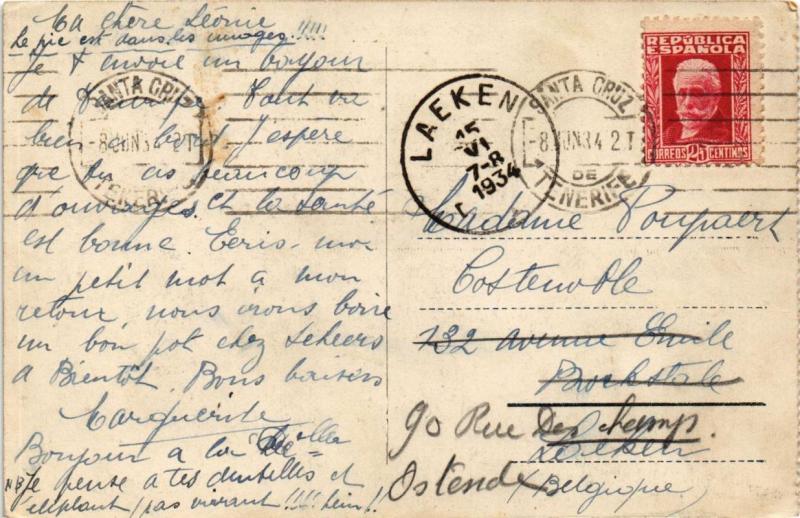 Ma chère Léonie
Le pic est dans les nuages !!!!!
Je t'envoie un bonjour
de Tout va
bien à bord J'espère
que tu as beaucoup
d'ouvrages et la santé
est bonne. Écris-moi
un petit mot a mon
retour nous irons boire
un bon pot chez
a Bientôt. Bons baisers
Marguerite
Bonjour a la
NB Je pense a tes dentelles et
éléphant (pas vivant !!!! hein!!
SANTA CRUZ
-8 JUN 34 2.T
TENERIFE
LAEKEN
15
VI
7-8
1934
SANTA CRUZ
-8 JUN 34 2.T
DE
TENERIFE
REPÚBLICA
ESPAÑOLA
CORREOS 25 CENTIMOS
Madame Poupaert
Costenoble
132 avenue Emile
Bockstale
90 Rue Des champs.
Laeken
Ostende
(Belgique)